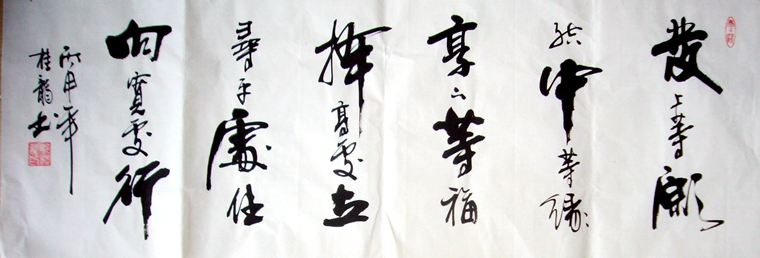 發上等願
結中等緣
享下等福
擇高處立
尋平處住
向寬處行
丙申年
桂龍書